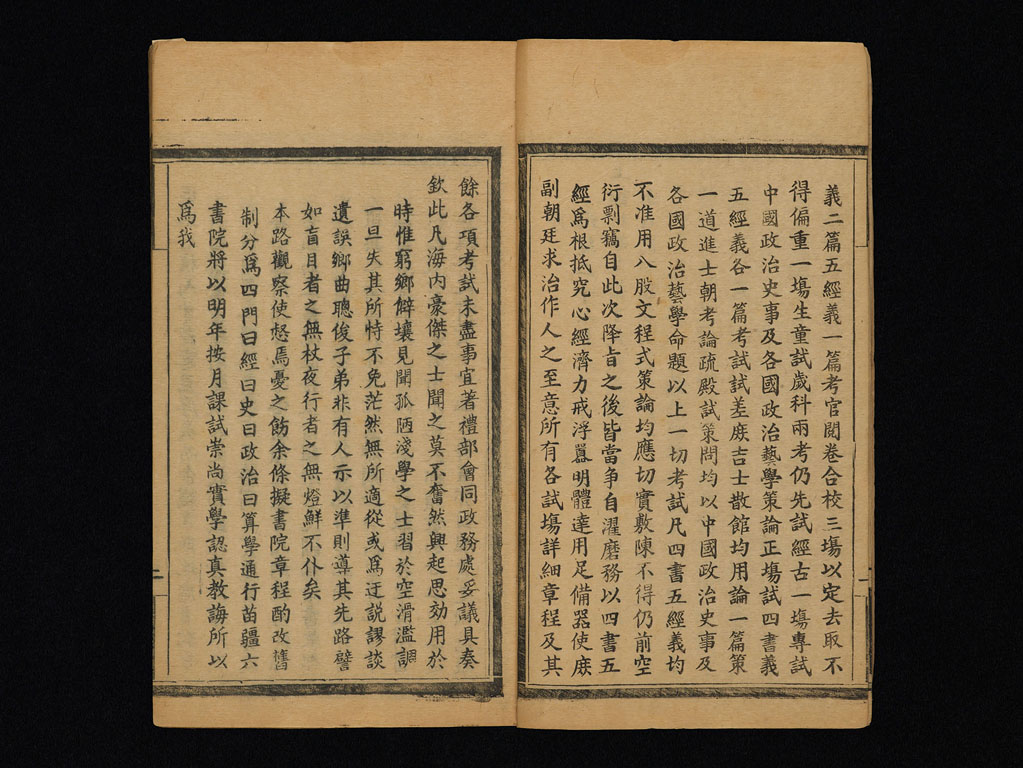 義二篇五經義一篇考官閱卷合校三塲以定去取不
得偏重一塲生童試歲科兩考仍先試經古一塲專試
中國政治史事及各國政治藝學策論正塲試四書義
五經義各一篇考試試差庻吉士散館均用論一篇策
一道進士朝考論疏殿試策問均以中國政治史事及
各國政治藝學命題以上一切考試凡四書五經義均
不准用八股文程式策論均應切實敷陳不得仍前空
衍剽竊自此次降㫖之後皆當爭自濯磨務以四書五
經爲根抵究心經濟力戒浮囂明體達用足備器使庻
副朝廷求治作人之至意所有各試塲詳細章程及其
餘各項考試未盡事宜著禮部會同政務處妥議具奏
欽此凡海内豪傑之士聞之莫不奮然興起思効用於
時惟窮鄉僻壤見聞孤陋淺學之士習於空滑濫調
一旦失其所恃不免茫然無所適從或爲迂説謬談
遺誤鄉曲聰俊子弟非有人示以準則導其先路譬
如盲目者之無杖夜行者之無燈鮮不仆矣
本路觀察使惄焉憂之飭余條擬書院章程酌改舊
制分爲四門曰經曰史曰政治曰算學通行苗疆六
書院將以明年按月課試崇尚實學認真教誨所以
爲我